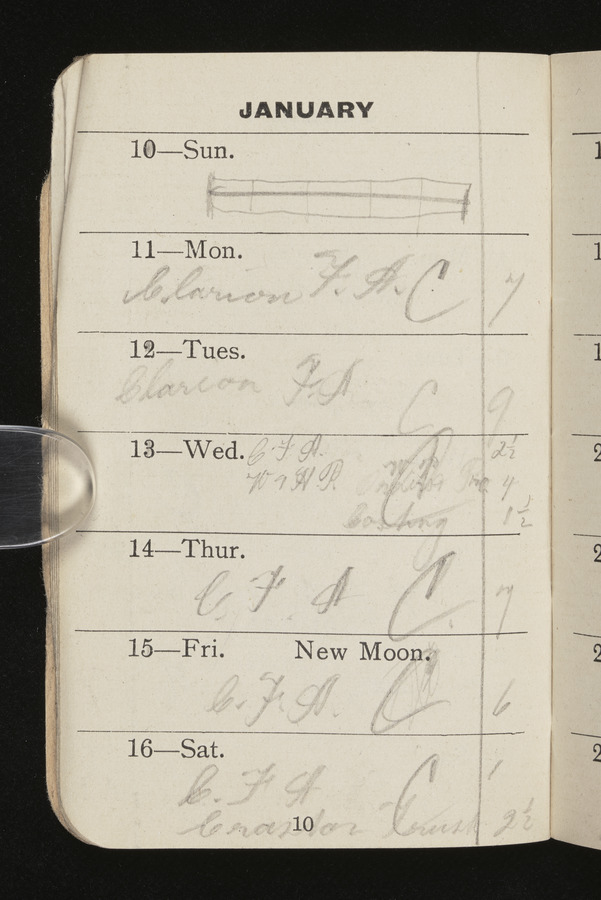 JANUARY
10—Sun.
11—Mon.
Clarion F. A. C 7
12—Tues.
Clarion F. A C 9
13—Wed. C. F. A. 2½
W & H P. 4
Costing 1½
14—Thur.
C. F. A C. 7
15—Fri. New Moon.
C. F. A. C 6
16—Sat.
C. F A C 1
2½
10